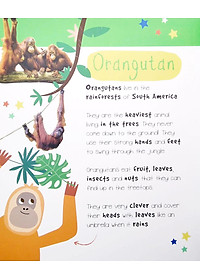 Orangutan
Orangutans live in the
rainforests of South America.
They are the heaviest animal
living in the trees. They never
come down to the ground! They
use their strong hands and feet
to swing through the jungle.
Orangutans eat fruit, leaves,
insects and nuts that they can
find up in the treetops.
They are very clever and cover
their heads with leaves like an
umbrella when it rains.